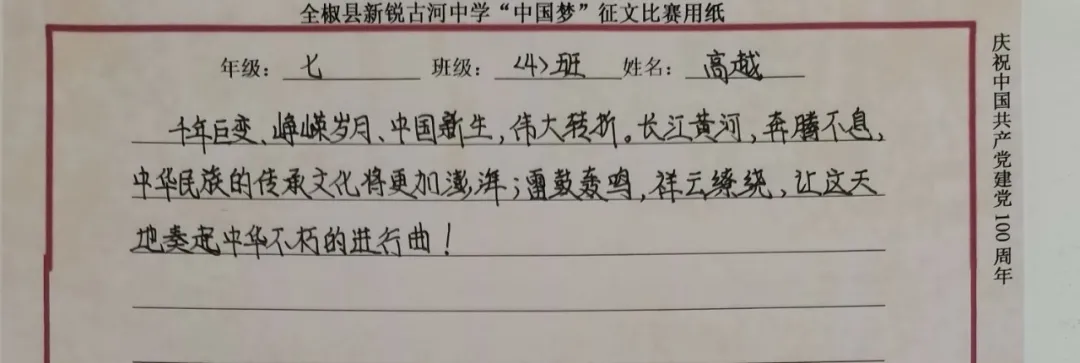 全椒县新锐古河中学“中国梦”征文比赛用纸
年级：七 班级：<4>班 姓名：高越
千年巨变、峥嵘岁月、中国新生，伟大转折。长江黄河，奔腾不息，
中华民族的传承文化将更加澎湃；雷鼓轰鸣，祥云缭绕，让这天
地奏起中华不朽的进行曲！
庆祝中国共产党建党100周年